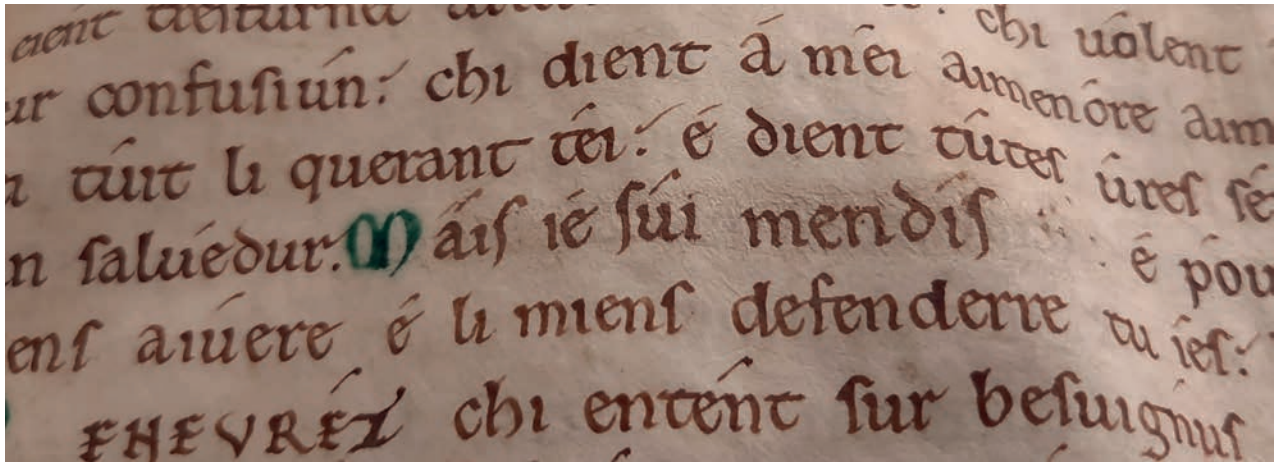 chi uólent
ur confuſiún: chi dient á méi aimenóre aim
túit li querant téi: é dient túteſ úreſ ſé
n ſaluédur. Máiſ ié ſúi mendiſ é póu
enſ aiúere é li mienſ defenderre tu ieſ:
EHEVRÉZ chi entént ſur beſuignuſ